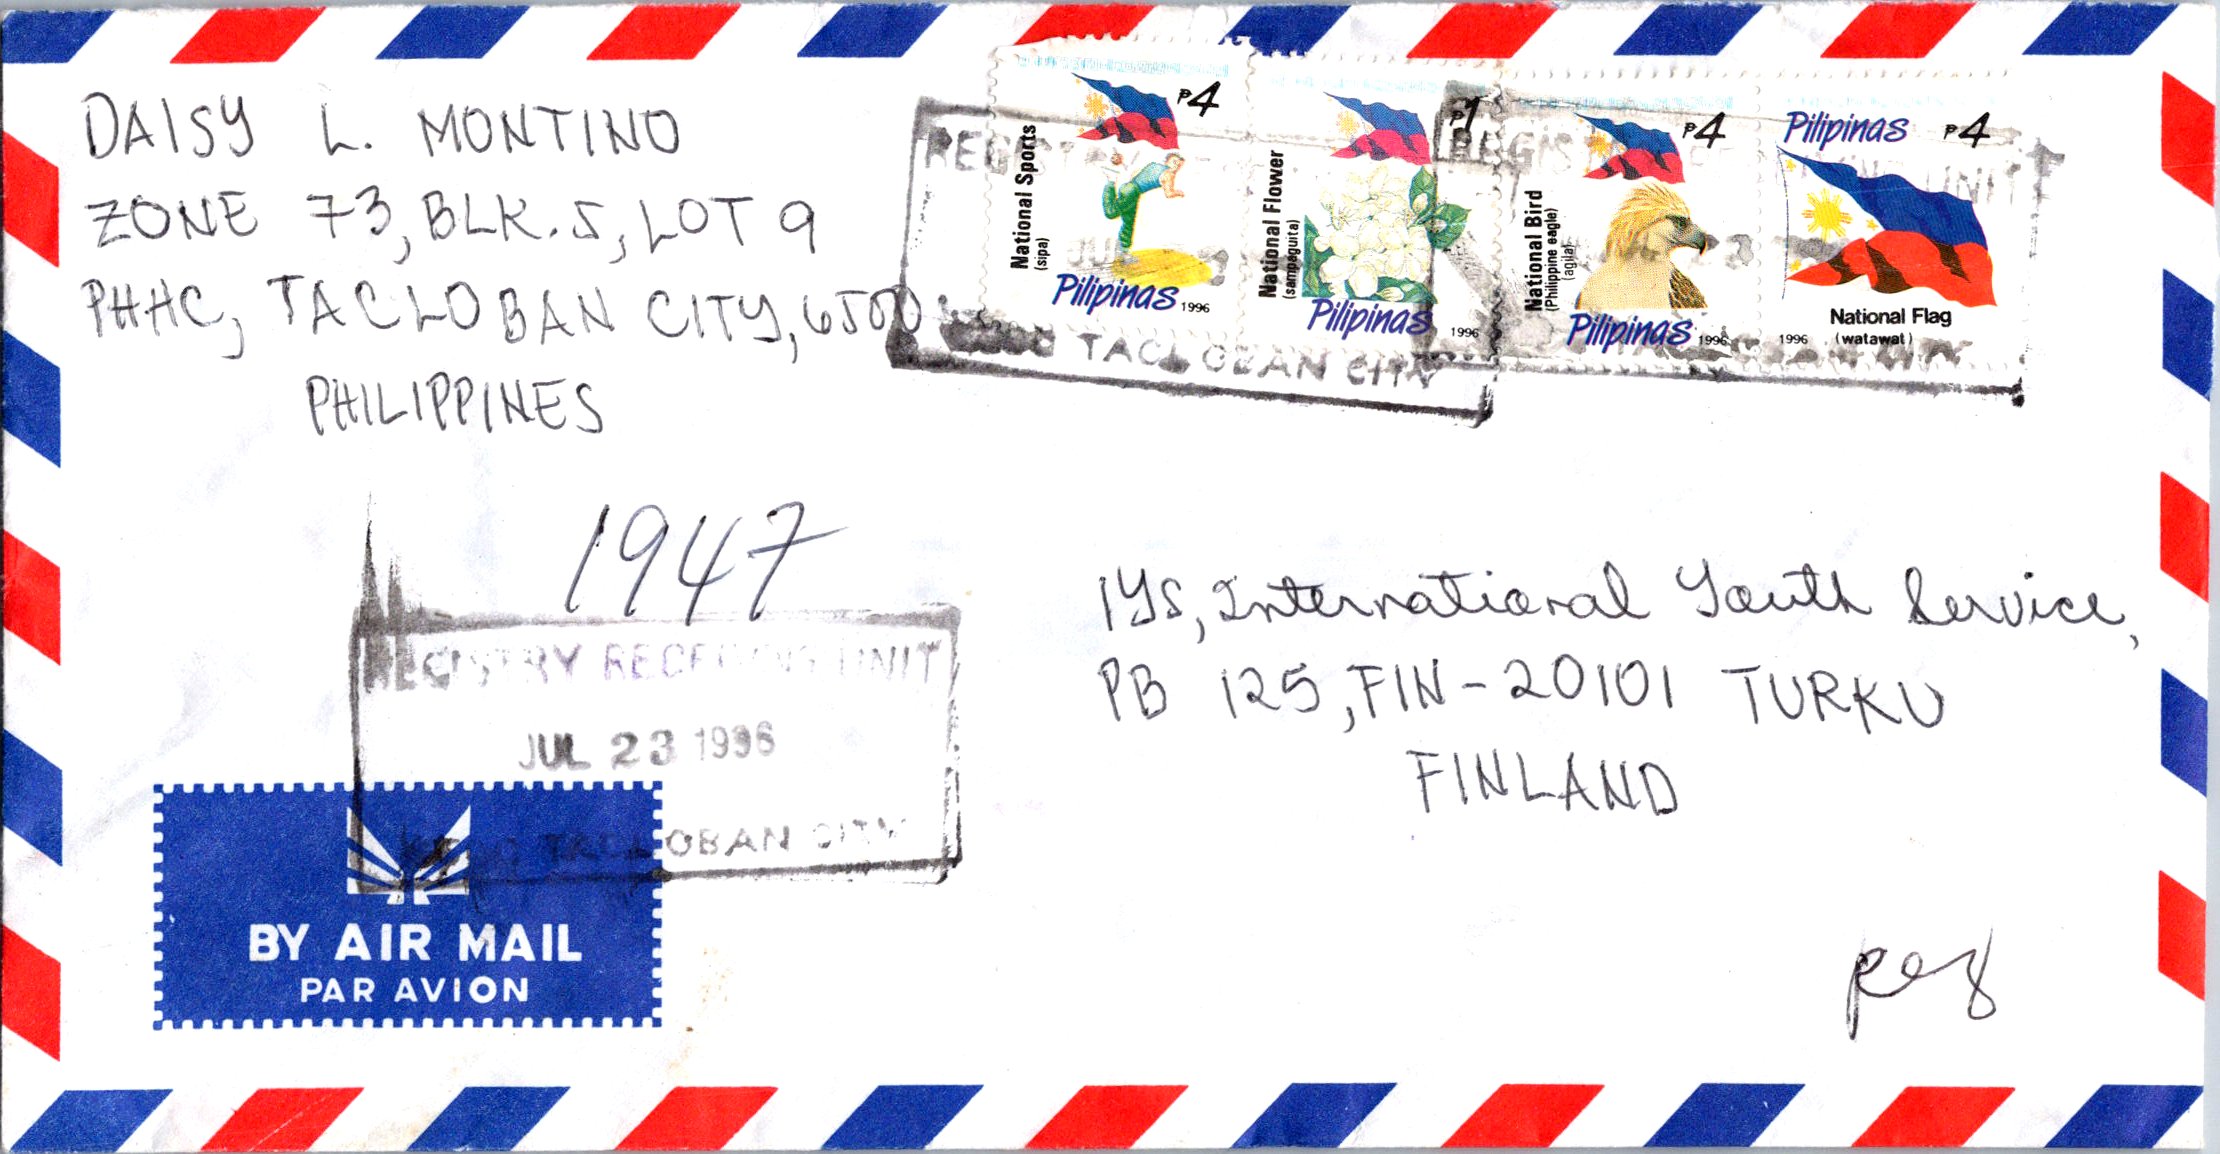 DAISY L. MONTINO
ZONE 73, BLK. 5, LOT 9
PHHC, TACLOBAN CITY, 6500
PHILIPPINES
₱4
National Sports
(sipa)
Pilipinas 1996
₱1
National Flower
(sampaguita)
Pilipinas 1996
₱4
National Bird
(Philippine eagle)
(agila)
Pilipinas 1996
Pilipinas ₱4
National Flag
1996 (watawat)
UNIT
TACLOBAN CITY
1947
REGISTRY RECEIVING UNIT
JUL 23 1996
TACLOBAN CITY
IYS, International Youth Service,
PB 125, FIN-20101 TURKU
FINLAND
BY AIR MAIL
PAR AVION
reg